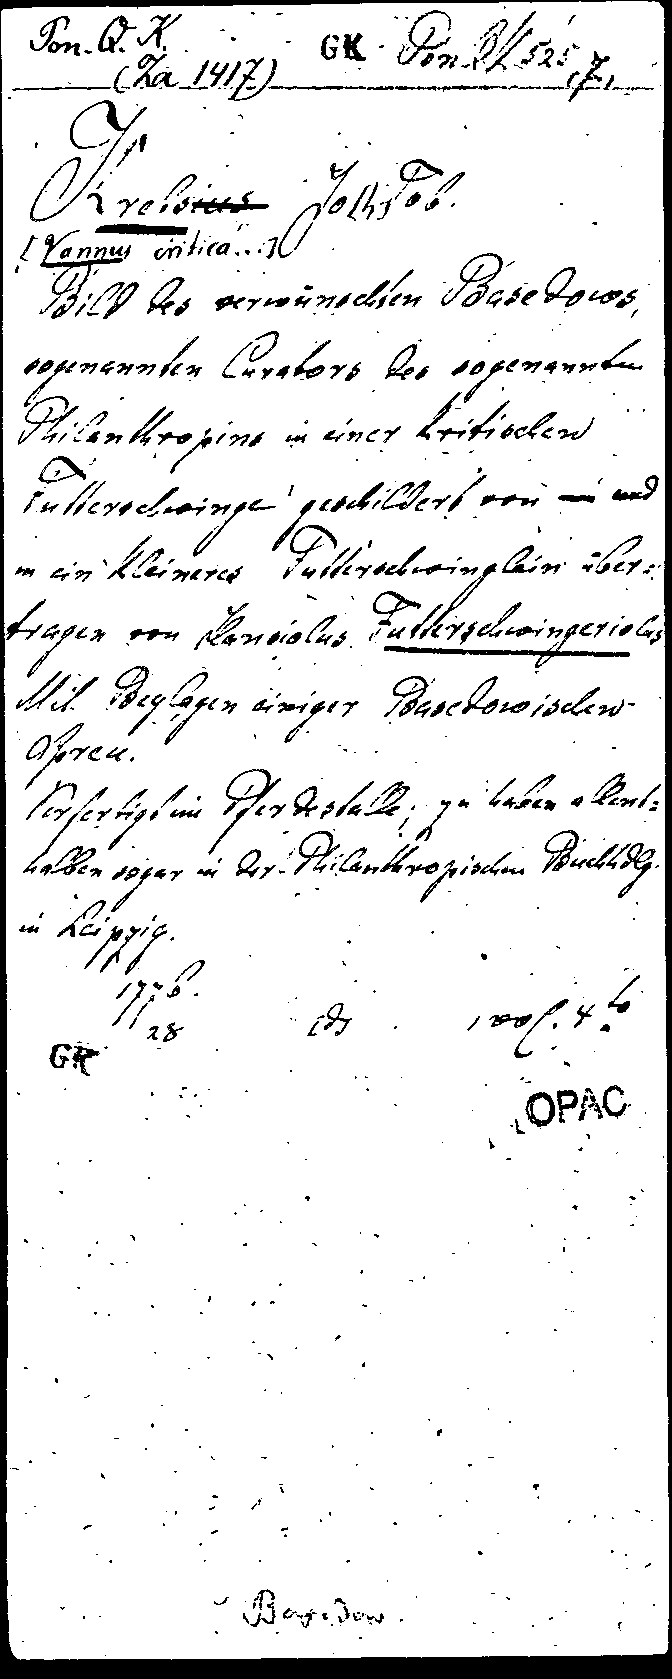 Pon. Q. K. GK Pon. QK 525, 7,
(Za 1417)
Krebsius Joh. Tob.
[Vannus critica...]
Bild des verwünschten Basedows,
sogenannten Curators des sogenannten
Philanthropins in einer kritischen
Futterschwinge geschildert von — und
in ein kleineres Futterschwinglein über-
tragen von Futterschwingeriolus
Mit Beylagen einiger Basedowischen
Spreu.
Verfertigt im Pferdestalle; zu haben allent-
halben sogar in der Philanthropischen Buchhdlg.
in Leipzig.
1776.
28 4to
GK
OPAC
Basedow